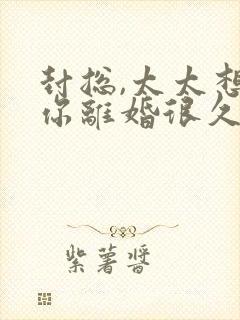 封总,太太想
你離婚很久
紫薯酱